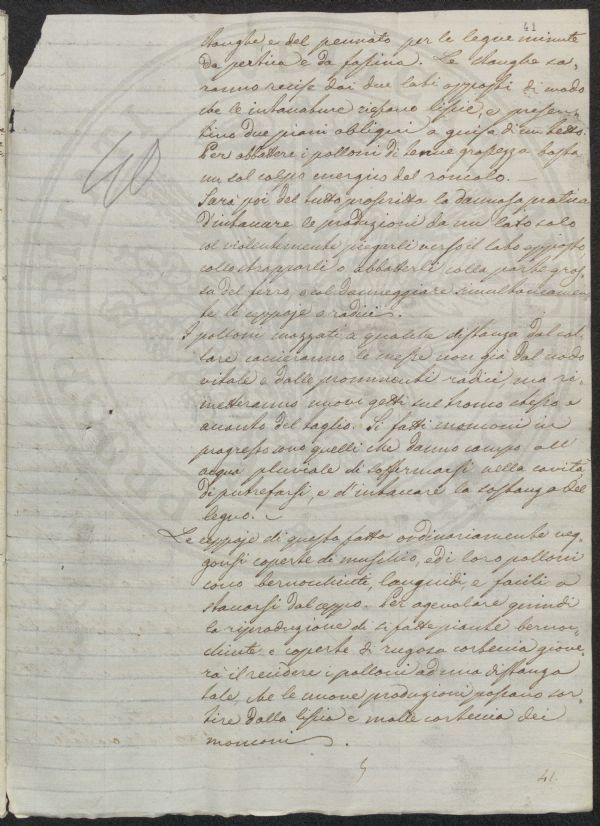 41
stanghe, e del pennato per le legne minute
da pertica e da fassina. Le stanghe sa-
ranno recise dai due lati opposti di modo
che le intaccature riescano liscie, e presen-
tino due piani obliqui a guisa di un tetto.
Per abbattere i polloni di tenue grossezza basta
un sol colpo energico del roncolo.
Sarà poi del tutto proscritta la dannosa pratica
d'intaccare le produzioni da un lato solo
col violentemente piegarli verso il lato opposto,
collo strapparli o abbatterli colla parte gros-
sa del ferro, o col danneggiare simultaneamen-
te le ceppaje o radici.
I polloni mozzati a qualche distanza dal col-
lare cacieranno le messe non già dal nodo
vitale e dalle prominenti radici ma ri-
metteranno nuovi getti sul tronco stesso e
accanto del taglio. Si fatti monconi in
progresso sono quelli che danno campo all'
acqua pluviale di soffermarsi nella cavità
di putrefarsi, e d'intaccare la sostanza del
legno.
Le ceppaje di questa fatta ordinariamente veg-
gonsi coperte di muschio, ed i loro polloni
sono bernoccliuti, languidi e facili a
staccarsi dal ceppo. Per agevolare quindi
la riproduzione di sì fatte piante bernoc-
cliute e coperte di rugosa corteccia giove-
rà il recidere i polloni ad una distanza
tale, che le nuove produzioni possano sor-
tire dalla liscia e molle corteccia dei
monconi.
41.